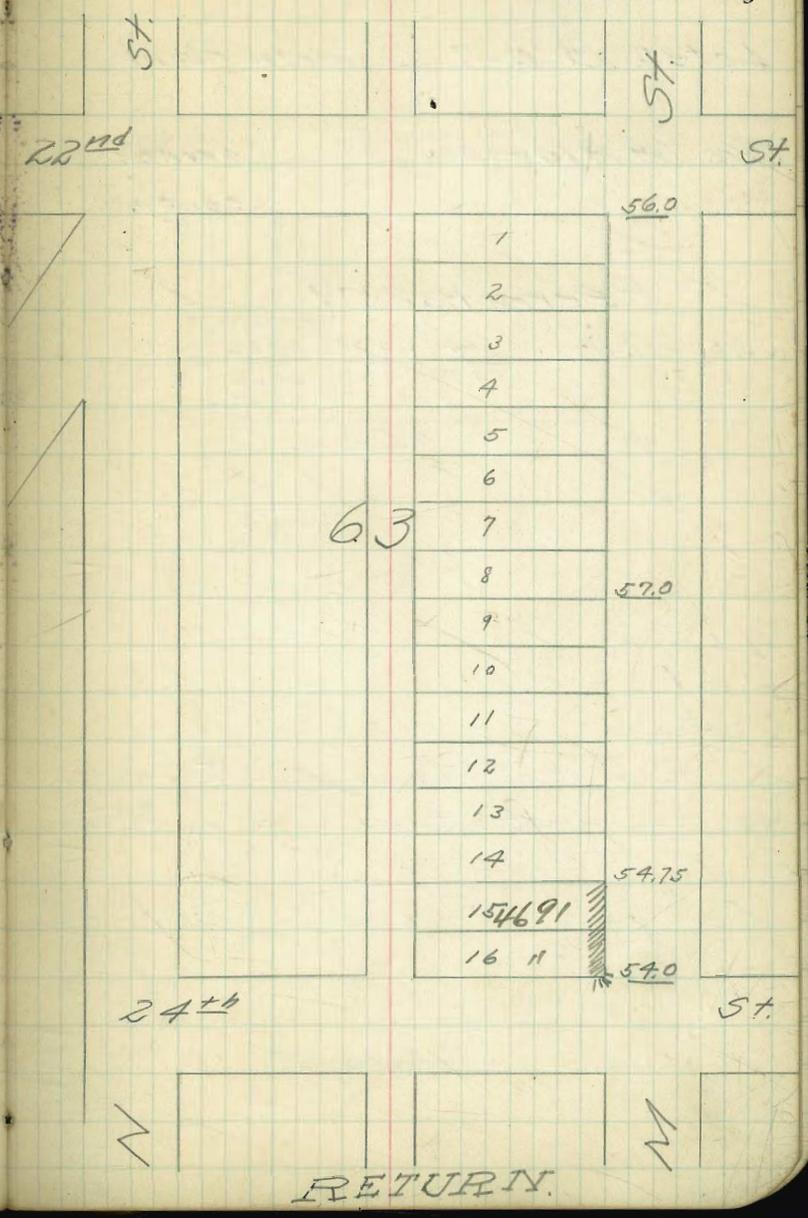 St.
St.
22nd
St.
56.0
1
2
3
4
5
6
63
7
8
57.0
9
10
11
12
13
14
54.75
15 4691
16 "
54.0
24th
St.
N
M
RETURN.